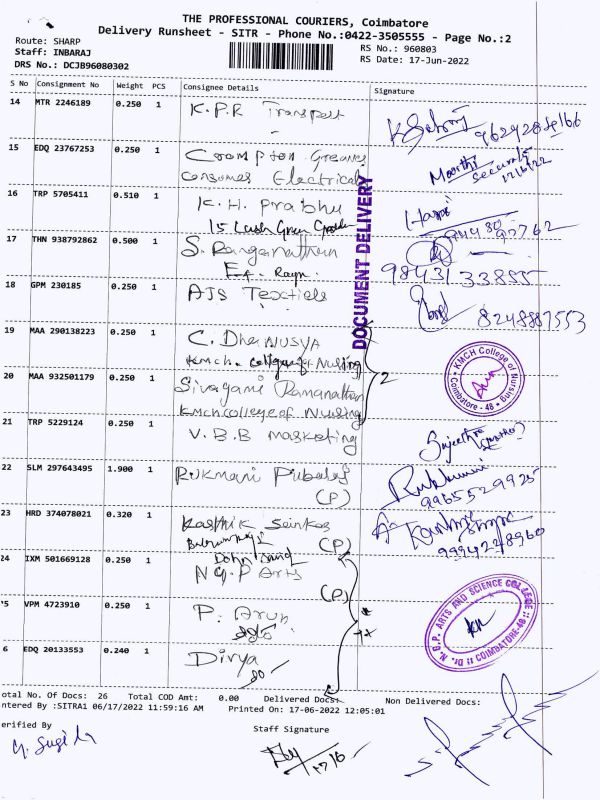 THE PROFESSIONAL COURIERS, Coimbatore
Delivery Runsheet - SITR - Phone No.:0422-3505555 - Page No.:2
Route: SHARP
RS No.: 960803
Staff: INBARAJ
RS Date: 17-Jun-2022
DRS No.: DCJB96080302
S No Consignment No Weight PCS Consignee Details Signature
14 MTR 2246189 0.250 1 K.P.R Transport
9629284166
15 EDQ 23767253 0.250 1 Crompton Greaves
Consumer Electrical
Moorthi
Security
17/6/22
16 TRP 5705411 0.510 1 K.H. Prabhu
15 Lush Green
17 THN 938792862 0.500 1 S. Ranganathan
9843133855
18 GPM 230185 0.250 1 AJS Textiles
8248887553
DOCUMENT DELIVERY
19 MAA 290138223 0.250 1 C. Dhanusya
Kmch. College of Nursing
2
KMCH College of Nursing
Coimbatore - 48
20 MAA 932501179 0.250 1 Sivagami Ramanathan
Kmch college of Nursing
21 TRP 5229124 0.250 1 V.B.B Marketing
Sujeethra
22 SLM 297643495 1.900 1 Rukmani
(P)
Rukmani
9965529925
23 HRD 374078021 0.320 1 Karthik
(P)
9994228960
24 IXM 501669128 0.250 1 N G P Arts
(P)
25 VPM 4723910 0.250 1 P. Arun
Dr. N.G.P. ARTS AND SCIENCE COLLEGE
COIMBATORE-48
26 EDQ 20133553 0.240 1 Divya
otal No. Of Docs: 26 Total COD Amt: 0.00 Delivered Docs: Non Delivered Docs:
ntered By :SITRA1 06/17/2022 11:59:16 AM Printed On: 17-06-2022 12:05:01
erified By
Staff Signature
17/6